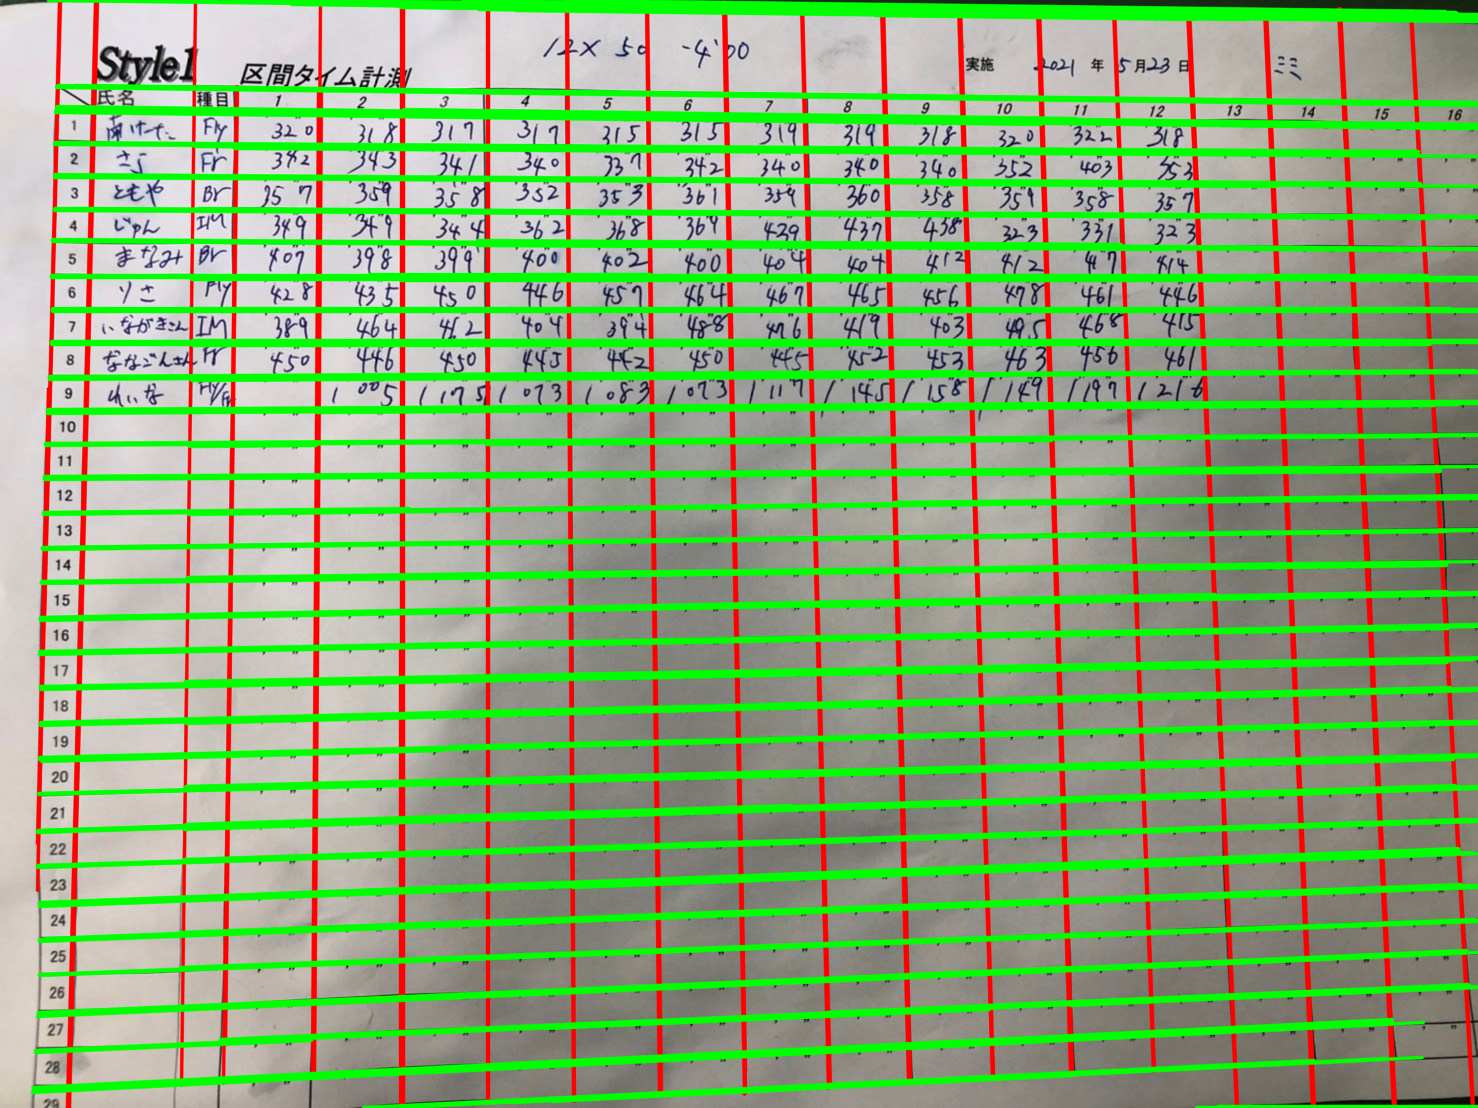 12× 50 -4'00
Style1 区間タイム計測 実施 2021 年 5月23日 ミミ
氏名 種目 1 2 3 4 5 6 7 8 9 10 11 12 13 14 15 16
1 Fly 32"0 31"8 31"7 31"7 31"5 31"5 31"9 31"9 31"8 32"0 32"2 31"8
2 さら Fr 34"2 34"3 34"1 34"0 33"7 34"2 34"0 34"0 34"0 35"2 40"3 35"3
3 ともや Br 35"7 35"9 35"8 35"2 35"3 36"1 35"9 36"0 35"8 35"9 35"8 35"7
4 じゅん IM 34"9 34"9 34"4 36"2 36"8 36"9 42"9 43"7 43"8 32"3 33"1 32"3
5 まなみ Br 40"7 39"8 39"9 40"0 40"2 40"0 40"4 40"4 41"2 41"2 41"7 41"4
6 りさ Fly 42"8 43"5 45"0 44"6 45"7 46"4 46"7 46"5 45"6 47"8 46"1 44"6
7 いながきさん IM 38"9 46"4 46"2 40"4 39"4 48"8 47"6 41"9 40"3 49"5 46"8 41"5
8 ななごんさん Fr 45"0 44"6 45"0 44"5 44"2 45"0 44"5 45"2 45"3 46"3 45"6 46"1
9 れいな Fly/Fr 1'00"5 1'07"5 1'07"3 1'08"3 1'07"3 1'11"7 1'14"5 1'15"8 1'14"9 1'19"7 1'21"6
10
11
12
13
14
15
16
17
18
19
20
21
22
23
24
25
26
27
28
29